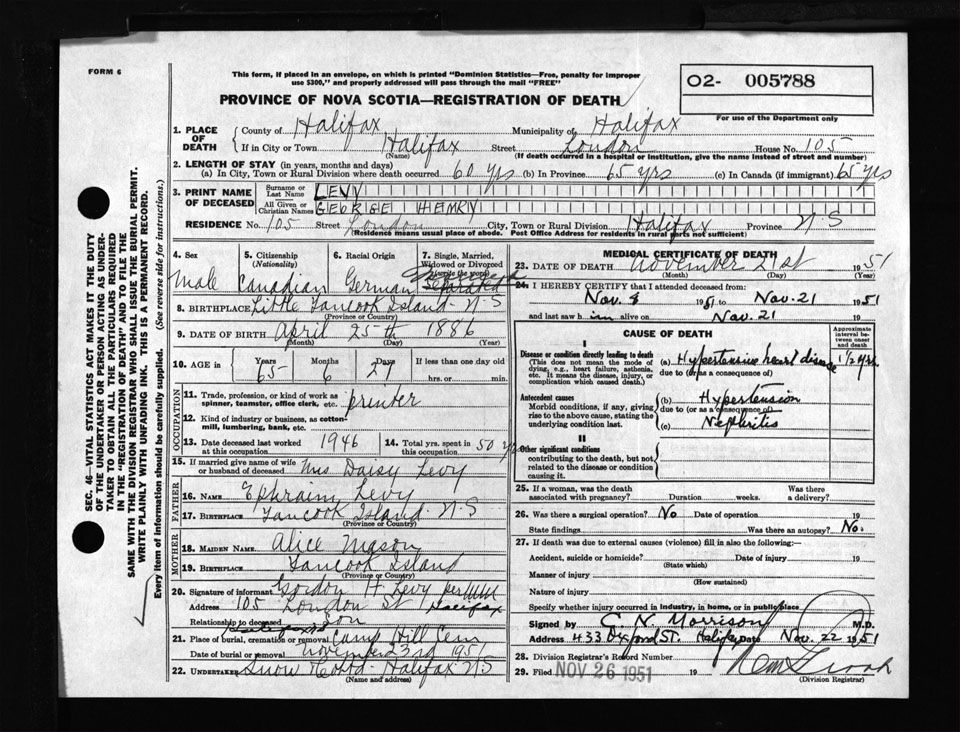 FORM 6
This form, if placed in an envelope, on which is printed "Dominion Statistics—Free, penalty for improper
use $300," and properly addressed will pass through the mail "FREE"
O2- 005788
PROVINCE OF NOVA SCOTIA—REGISTRATION OF DEATH
For use of the Department only
1. PLACE OF DEATH County of Halifax Municipality of Halifax
If in City or Town Halifax Street London House No. 105
(Name) (If death occurred in a hospital or institution, give the name instead of street and number)
2. LENGTH OF STAY (in years, months and days)
(a) In City, Town or Rural Division where death occurred 60 yrs (b) In Province 65 yrs (c) In Canada (if immigrant) 65 yrs
3. PRINT NAME OF DECEASED Surname or Last Name LEVY
All Given or Christian Names GEORGE HENRY
RESIDENCE No. 105 Street London City, Town or Rural Division Halifax Province N-S
(Residence means usual place of abode. Post Office Address for residents in rural parts not sufficient)
4. Sex 5. Citizenship (Nationality) 6. Racial Origin 7. Single, Married, Widowed or Divorced (write the word)
Male Canadian German Separated
8. BIRTHPLACE Little Tancook Island - N-S
(Province or Country)
9. DATE OF BIRTH April 25th 1886
(Month) (Day) (Year)
10. AGE in Years Months Days If less than one day old
65 6 27 hrs. or min.
OCCUPATION
11. Trade, profession, or kind of work as spinner, teamster, office clerk, etc.
12. Kind of industry or business, as cotton-mill, lumbering, bank, etc.
13. Date deceased last worked at this occupation 1946 14. Total yrs. spent in this occupation 50 yrs
15. If married give name of wife or husband of deceased Mrs Daisy Levy
FATHER
16. NAME Ephraim Levy
17. BIRTHPLACE Tancook Island - N-S
(Province or Country)
MOTHER
18. MAIDEN NAME Alice Mason
19. BIRTHPLACE Tancook Island
(Province or Country)
20. Signature of informant Gordon H. Levy per
Address 105 London St Halifax
Relationship to deceased son
21. Place of burial, cremation or removal Camp Hill Cem
Date of burial or removal November 23rd 1951
22. UNDERTAKER Snow & Co Ltd - Halifax N-S
(Name and address)
MEDICAL CERTIFICATE OF DEATH
23. DATE OF DEATH November 21st 1951
(Month) (Day) (Year)
24. I HEREBY CERTIFY that I attended deceased from:
Nov. 8 1951 to Nov. 21 1951
and last saw him alive on Nov. 21 19
CAUSE OF DEATH
Approximate interval between onset and death
I
Disease or condition directly leading to death
(This does not mean the mode of dying, e.g., heart failure, asthenia, etc. It means the disease, injury, or complication which caused death.)
(a) Hypertensive heart disease 1 1/2 yrs
due to (or as a consequence of)
Antecedent causes
Morbid conditions, if any, giving rise to the above cause, stating the underlying condition last.
(b) Hypertension
due to (or as a consequence of)
(c) Nephritis
II
Other significant conditions
contributing to the death, but not related to the disease or condition causing it.
25. If a woman, was the death associated with pregnancy? Duration weeks. Was there a delivery?
26. Was there a surgical operation? No Date of operation 19
State findings Was there an autopsy? No.
27. If death was due to external causes (violence) fill in also the following:—
Accident, suicide or homicide? Date of injury 19
(State which)
Manner of injury
(How sustained)
Nature of injury
Specify whether injury occurred in industry, in home, or in public place
Signed by C. N. Morrison M.D.
Address 433 Oxford St. Halifax Date Nov. 22 1951
28. Division Registrar's Record Number
29. Filed NOV 26 1951 19
(Division Registrar)
SEC. 46—VITAL STATISTICS ACT MAKES IT THE DUTY
OF THE UNDERTAKER OR PERSON ACTING AS UNDER-
TAKER TO OBTAIN ALL THE PARTICULARS REQUIRED
IN THE "REGISTRATION OF DEATH" AND TO FILE THE
SAME WITH THE DIVISION REGISTRAR WHO SHALL ISSUE THE BURIAL PERMIT.
WRITE PLAINLY WITH UNFADING INK. THIS IS A PERMANENT RECORD.
Every item of information should be carefully supplied. (See reverse side for instructions.)